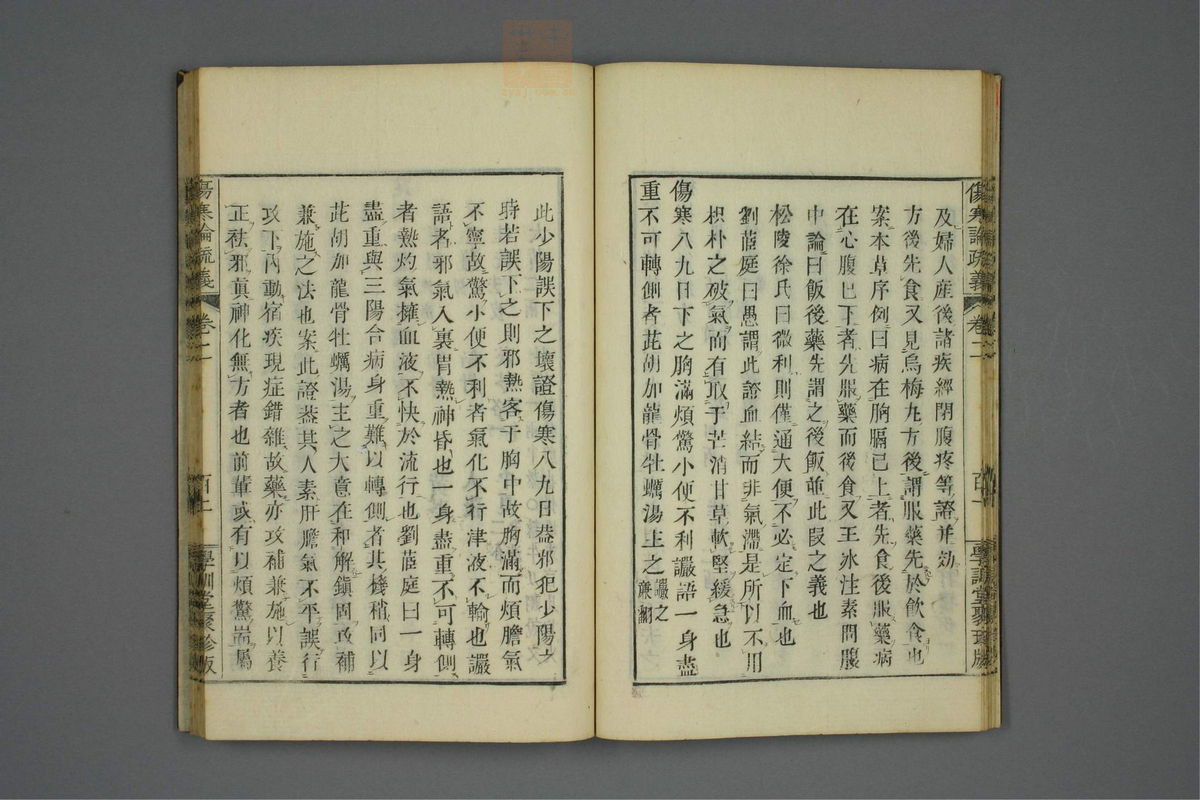 傷寒論疏義 卷二 百十一 學訓堂聚珍版
及婦人產後諸疾經閉腹疼等證并効
方後先食又見烏梅丸方後謂服藥先於飲食也
案本草序例曰病在胸膈已上者先食後服藥病
在心腹巳下者先服藥而後食又王冰注素問腹
中論曰飯後藥先謂之後飯並此叚之義也
松陵徐氏曰微利則僅通大便不必定下血也
劉蒞庭曰愚謂此證血結而非氣滯是所以不用
枳朴之破氣而有取于芒消甘草軟堅緩急也
傷寒八九日下之胸滿煩驚小便不利讝語一身盡
重不可轉側者茈胡加龍骨牡蠣湯主之
此少陽誤下之壞證傷寒八九日葢邪犯少陽之
時若誤下之則邪熱客于胸中故胸滿而煩膽氣
不寧故驚小便不利者氣化不行津液不輸也讝
語者邪氣入裏胃熱神昏也一身盡重不可轉側
者熱灼氣擁血液不快於流行也劉蒞庭曰一身
盡重與三陽合病身重難以轉側者其機稍同以
茈胡加龍骨牡蠣湯主之大意在和解鎭固攻補
兼施之法也案此證葢其人素肝膽氣不平誤行
攻下內動宿疾現症錯雜故藥亦攻補兼施以養
正祛邪眞神化無方者也前輩或有以煩驚耑屬
傷寒論疏義 卷二 學訓堂聚珍版